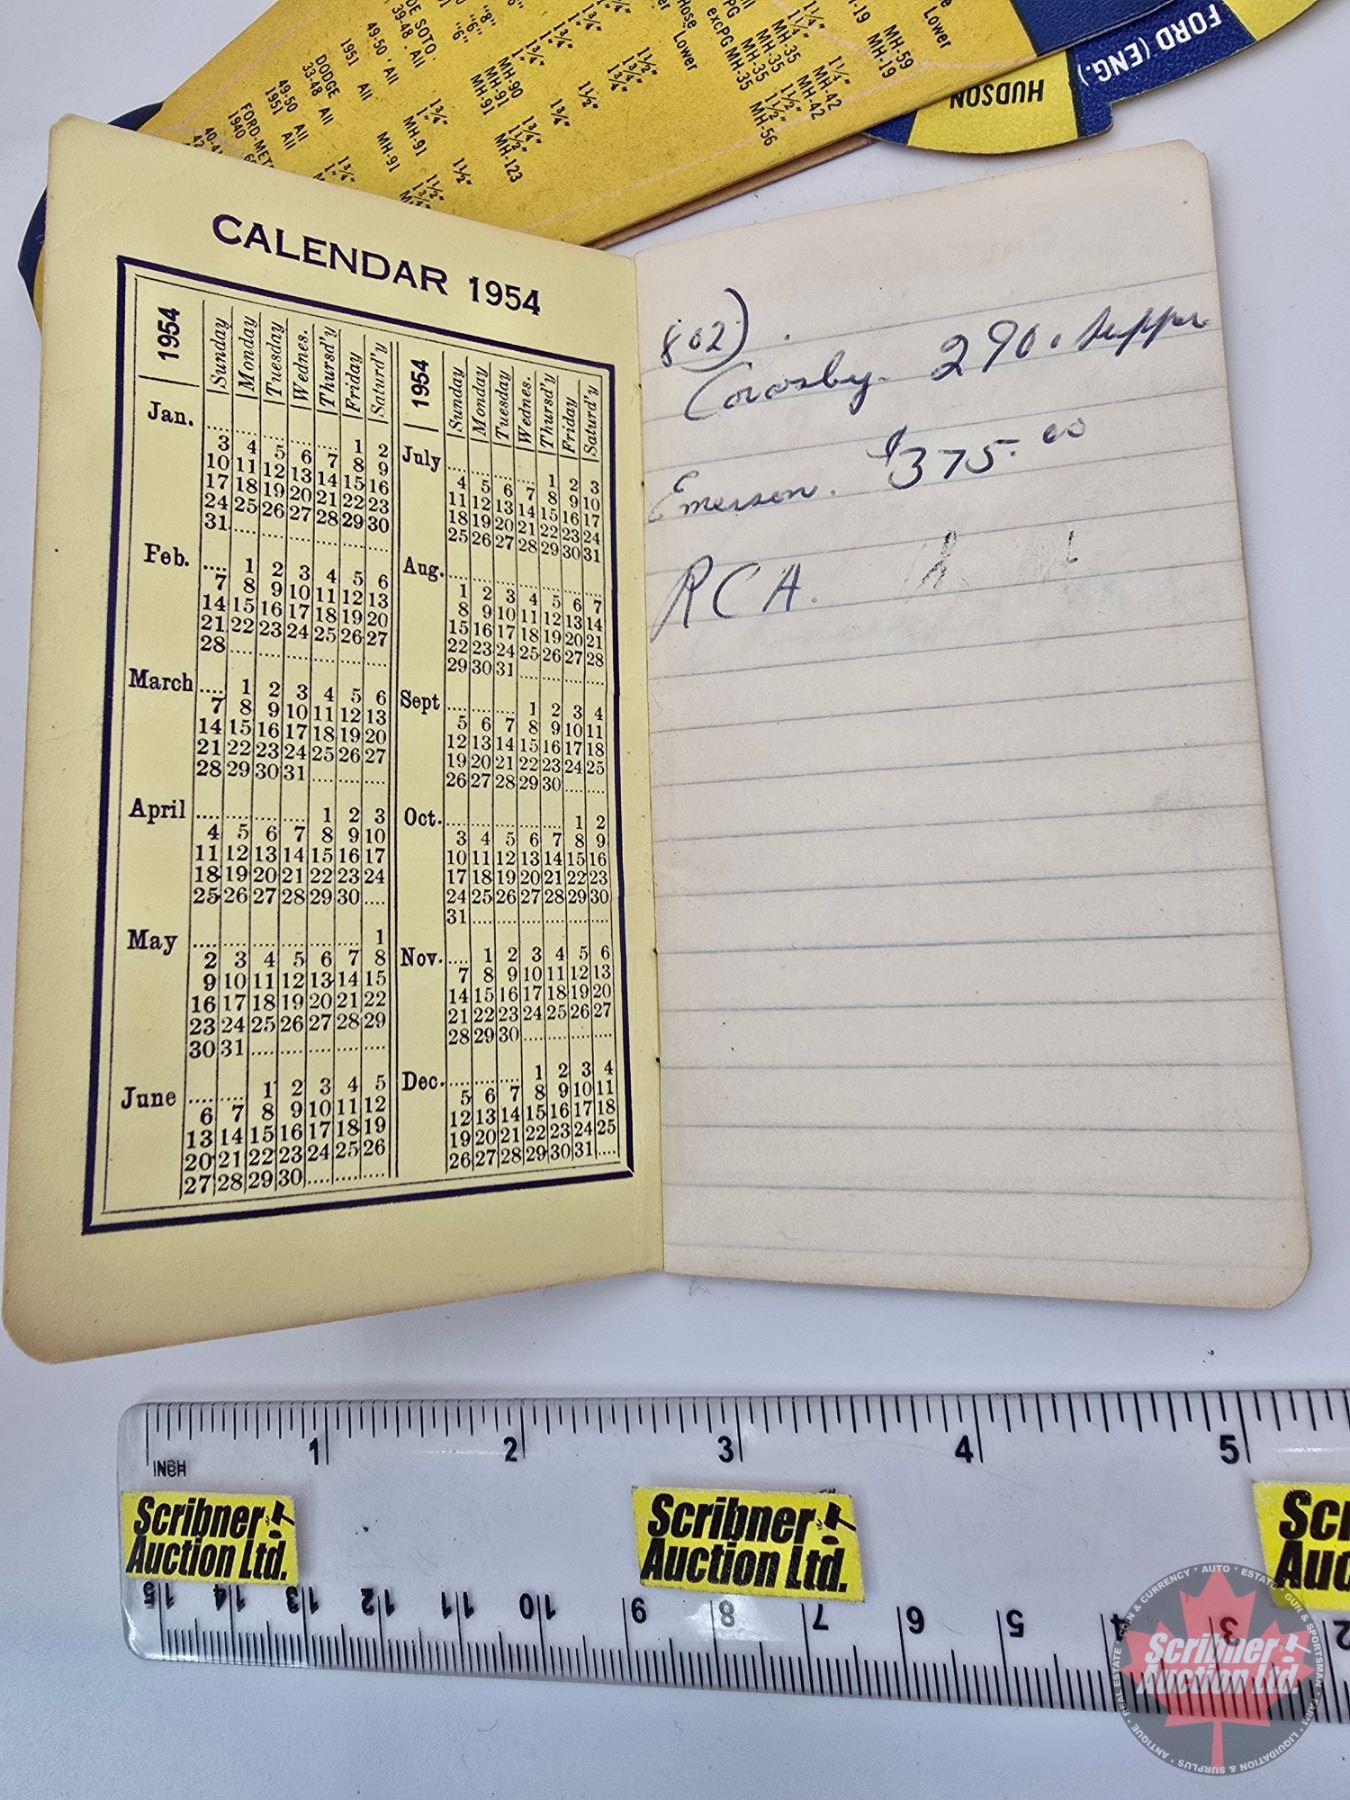 DE SOTO
39-48 . All
49-50 . All
1951 All
DODGE
33-48 All
49-50 All
1951 All
1940
MH-90
MH-91
MH-91
MH-91
MH-91
MH-123
Hose
Lower
MH-35
MH-35
MH-35
MH-42
MH-42
MH-56
MH-19
MH-59
MH-19
Lower
HUDSON
FORD (ENG.)
CALENDAR 1954
1954 Sunday Monday Tuesday Wednes. Thursd'y Friday Saturd'y
Jan. 1 2
3 4 5 6 7 8 9
10 11 12 13 14 15 16
17 18 19 20 21 22 23
24 25 26 27 28 29 30
31
Feb. 1 2 3 4 5 6
7 8 9 10 11 12 13
14 15 16 17 18 19 20
21 22 23 24 25 26 27
28
March 1 2 3 4 5 6
7 8 9 10 11 12 13
14 15 16 17 18 19 20
21 22 23 24 25 26 27
28 29 30 31
April 1 2 3
4 5 6 7 8 9 10
11 12 13 14 15 16 17
18 19 20 21 22 23 24
25 26 27 28 29 30
May 1
2 3 4 5 6 7 8
9 10 11 12 13 14 15
16 17 18 19 20 21 22
23 24 25 26 27 28 29
30 31
June 1 2 3 4 5
6 7 8 9 10 11 12
13 14 15 16 17 18 19
20 21 22 23 24 25 26
27 28 29 30
1954 Sunday Monday Tuesday Wednes. Thursd'y Friday Saturd'y
July 1 2 3
4 5 6 7 8 9 10
11 12 13 14 15 16 17
18 19 20 21 22 23 24
25 26 27 28 29 30 31
Aug.
1 2 3 4 5 6 7
8 9 10 11 12 13 14
15 16 17 18 19 20 21
22 23 24 25 26 27 28
29 30 31
Sept 1 2 3 4
5 6 7 8 9 10 11
12 13 14 15 16 17 18
19 20 21 22 23 24 25
26 27 28 29 30
Oct. 1 2
3 4 5 6 7 8 9
10 11 12 13 14 15 16
17 18 19 20 21 22 23
24 25 26 27 28 29 30
31
Nov. 1 2 3 4 5 6
7 8 9 10 11 12 13
14 15 16 17 18 19 20
21 22 23 24 25 26 27
28 29 30
Dec. 1 2 3 4
5 6 7 8 9 10 11
12 13 14 15 16 17 18
19 20 21 22 23 24 25
26 27 28 29 30 31
802)
Crosby. 290.
Emerson. $375.00
RCA.
1 2 3 4 5
INCH
Scribner
Auction Ltd.
Scribner
Auction Ltd.
15 14 13 12 11 10 9 8 7 6 5 4 3 2
COIN & CURRENCY · AUTO · ESTATE · GUN & SPORTSMAN · FARM · LIQUIDATION & SURPLUS · ANTIQUE · REAL ESTATE
Scribner
Auction Ltd